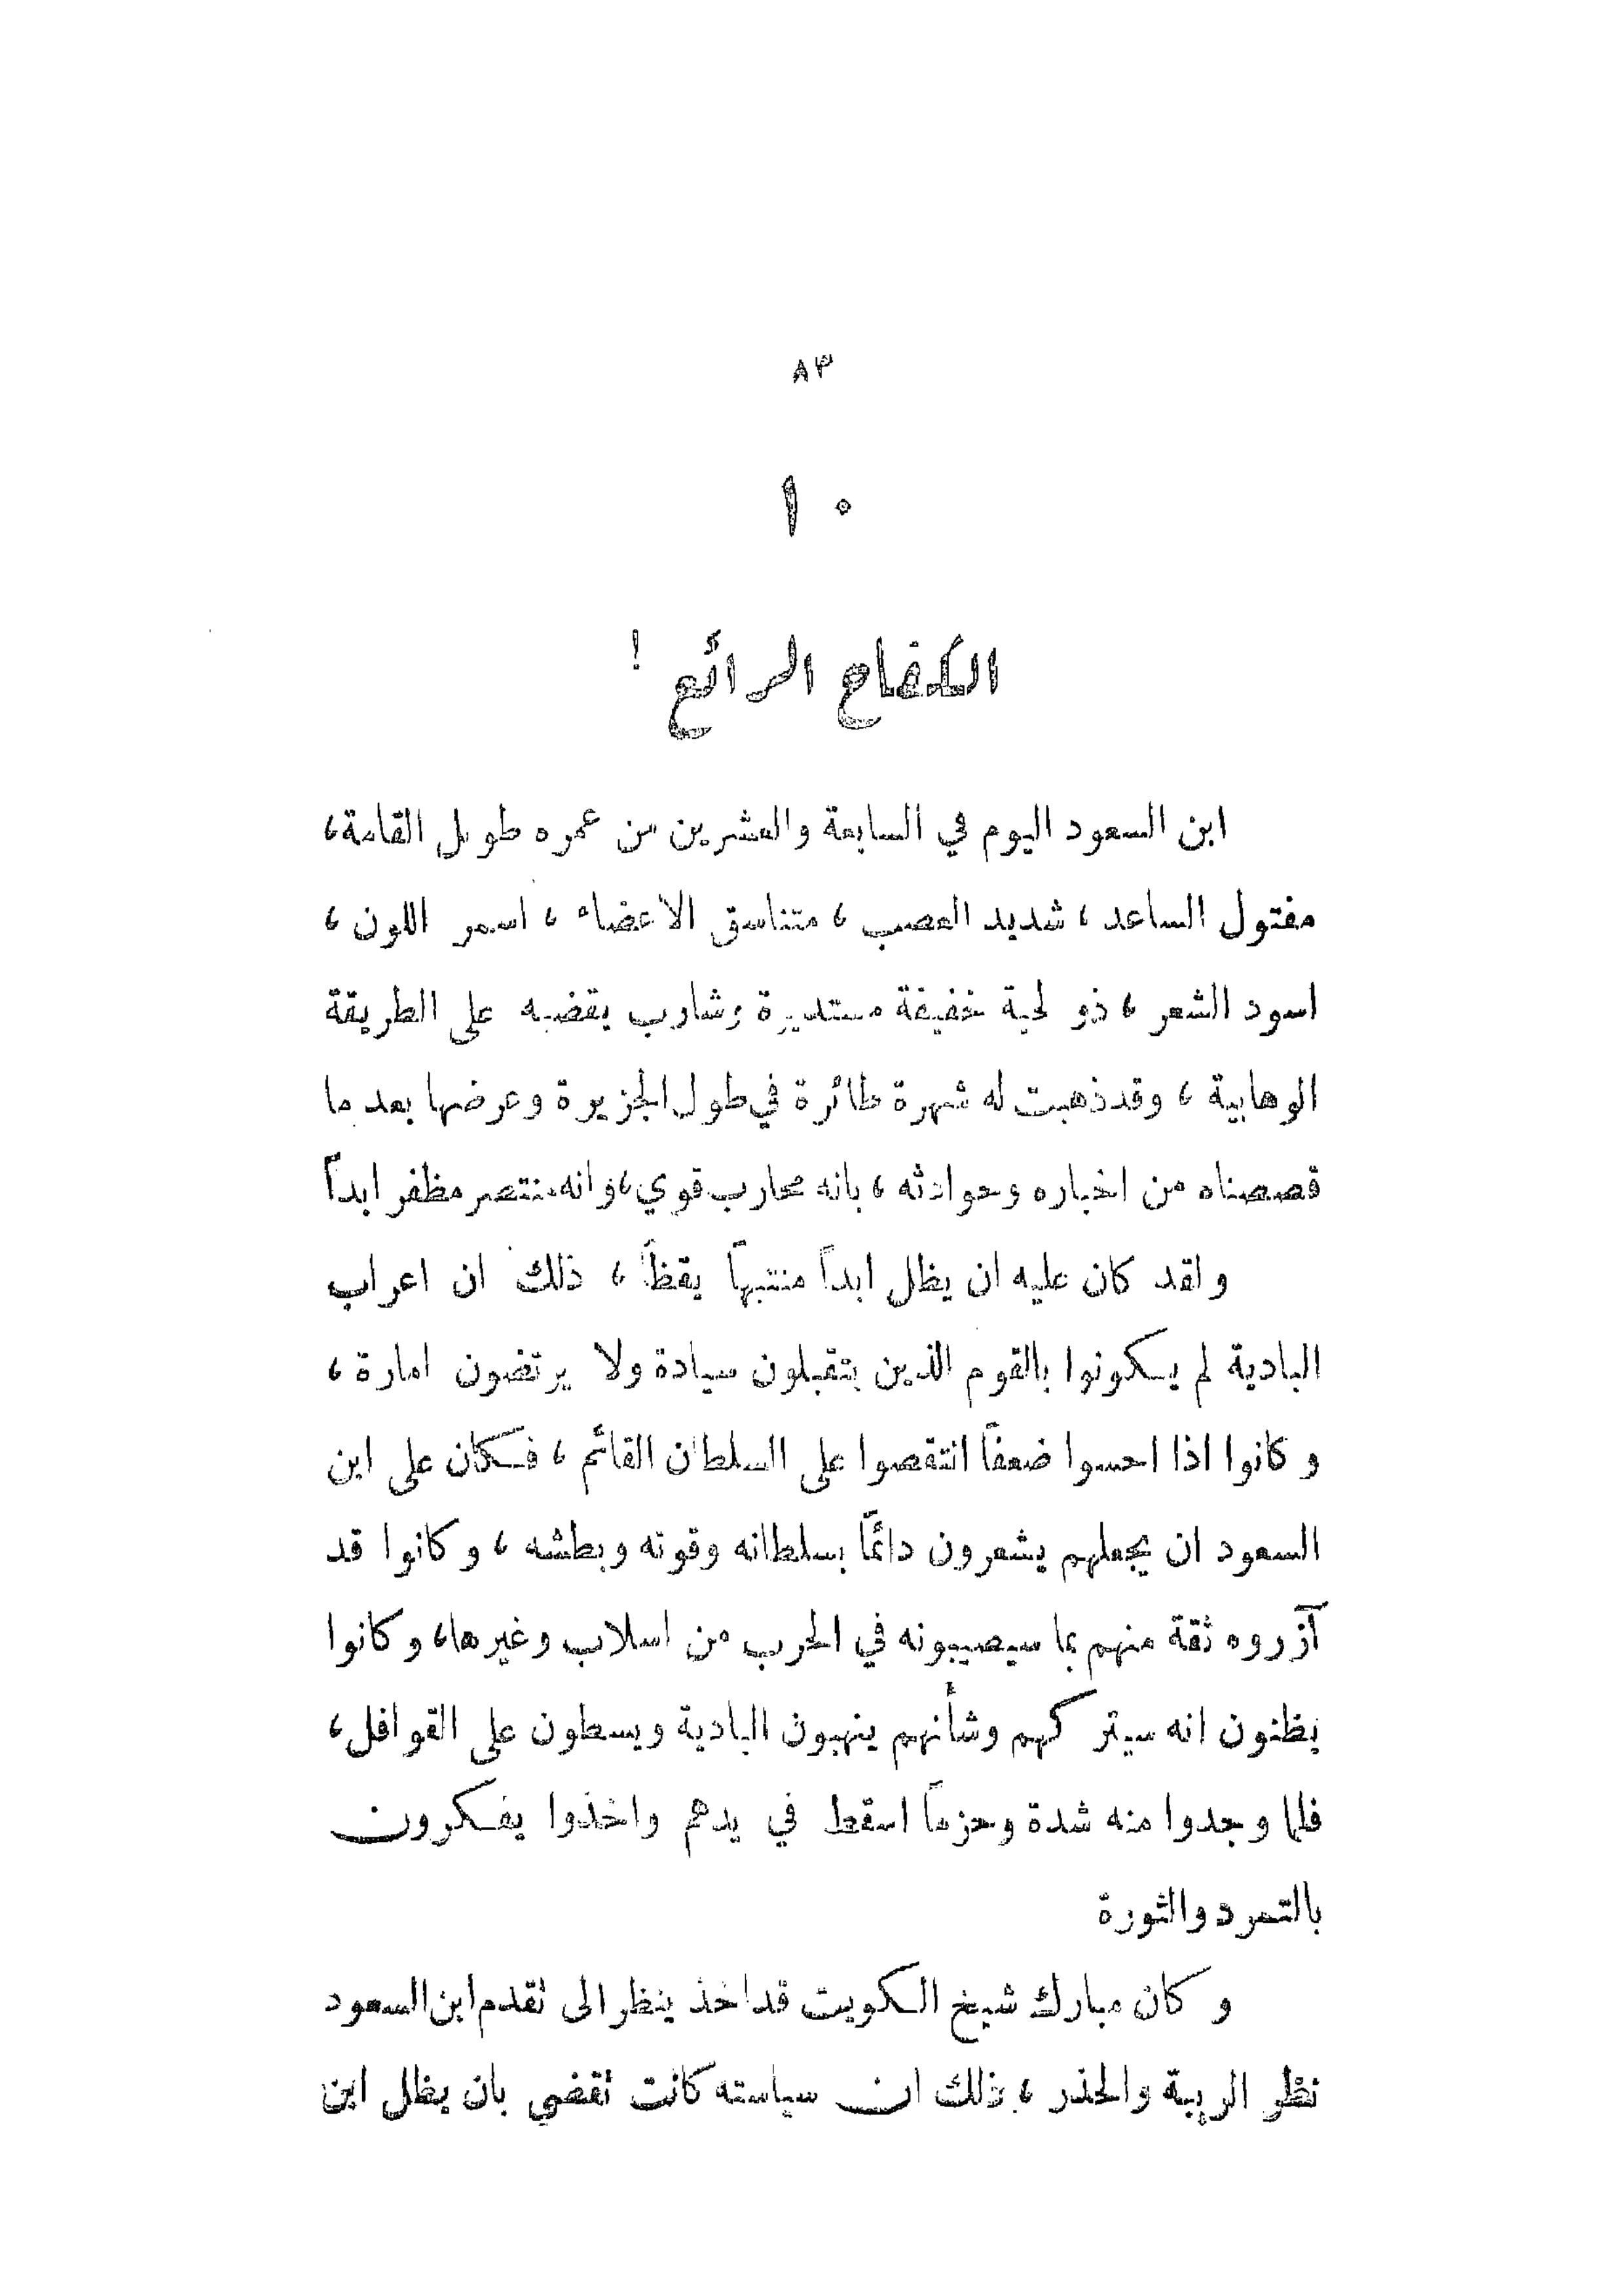 ٨٣
١٠
الكفاح الرائع !
ابن السعود اليوم في السابعة والعشرين من عمره طويل القامة،
مفتول الساعد ، شديد العصب ، متناسق الاعضاء ، اسمر اللون ،
اسود الشعر ، ذو لحية خفيفة مستديرة وشارب يقضبه على الطريقة
الوهابية ، وقد ذهبت له شهرة طائرة في طول الجزيرة وعرضها بعد ما
قصصناه من اخباره وحوادثه ، بانه محارب قوي ، وانه منتصر مظفر ابداً
ولقد كان عليه ان يظل ابداً منتبهاً يقظاً ، ذلك ان اعراب
البادية لم يكونوا بالقوم الذين يتقبلون سيادة ولا يرتضون امارة ،
وكانوا اذا احسوا ضعفاً انتقصوا على السلطان القائم ، فكان على ابن
السعود ان يجعلهم يشعرون دائماً بسلطانه وقوته وبطشه ، وكانوا قد
آزروه ثقة منهم بما سيصيبونه في الحرب من اسلاب وغيرها، وكانوا
يظنون انه سيتركهم وشأنهم ينهبون البادية ويسطون على القوافل ،
فلما وجدوا منه شدة وحزماً اسقط في يدهم واخذوا يفكرون
بالتمرد والثورة
وكان مبارك شيخ الكويت قد اخذ ينظر الى تقدم ابن السعود
نظر الريبة والحذر ، ذلك ان سياسته كانت تقضي بان يظل ابن